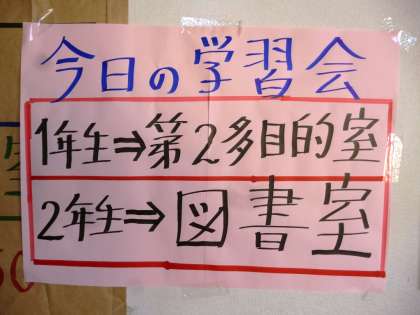 今日の学習会
1年生⇒第2多目的室
2年生⇒図書室